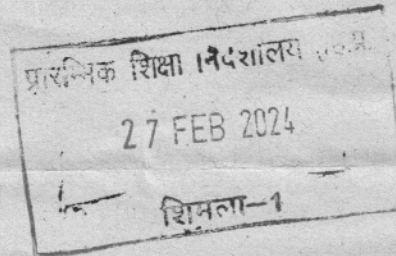 प्रारम्भिक शिक्षा निदेशालय
27 FEB 2024
शिमला-1